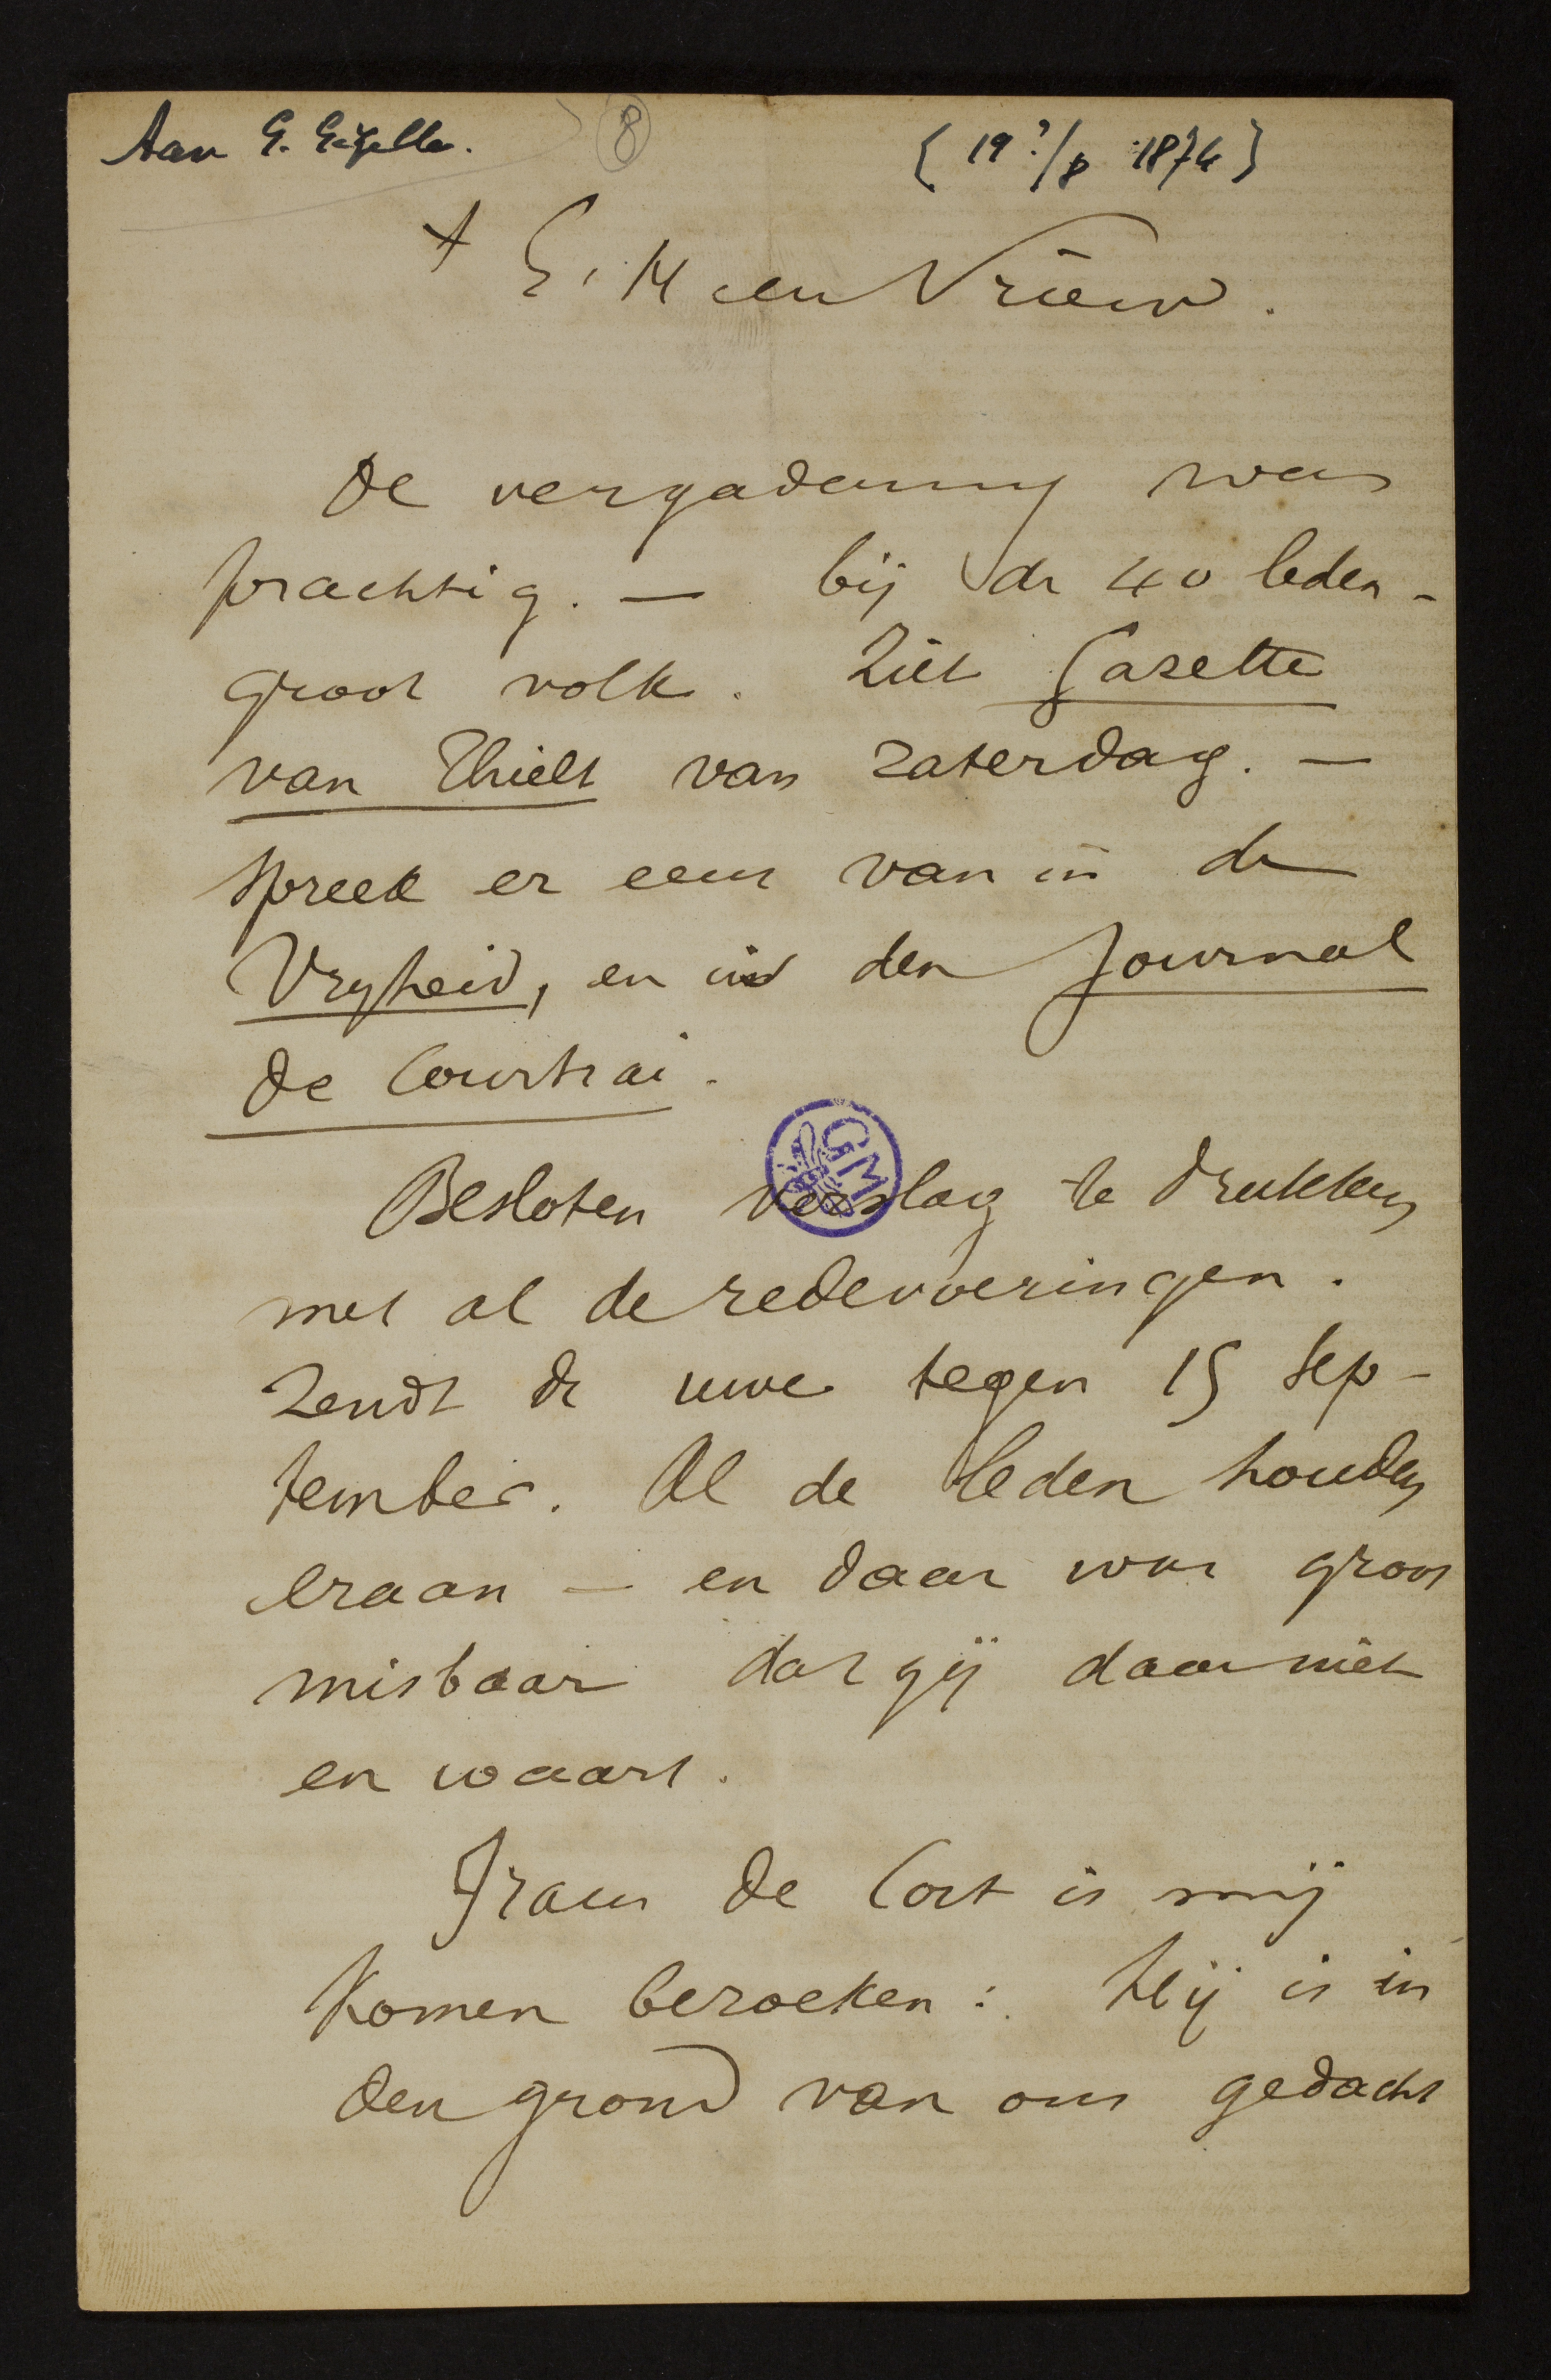 Aan G. Gezelle.
8
[19?/8 1874]
+ E. H en Vriend.
De vergadering was
prachtig. — bij de 40 leden -
groot volk. Ziet Gazette
van Thielt van zaterdag. —
spreek er eens van in de
Vryheid, en in den Journal
de Courtrai.
GM
Besloten verslag te drukken
met al de redevoeringen.
Zendt de uwe tegen 15 Sep-
tember. Al de leden houden
eraan — en daar was groot
misbaar dat gij daar niet
en waart.
Frans de Cort is mij
komen bezoeken: hij is in
den grond van ons gedacht